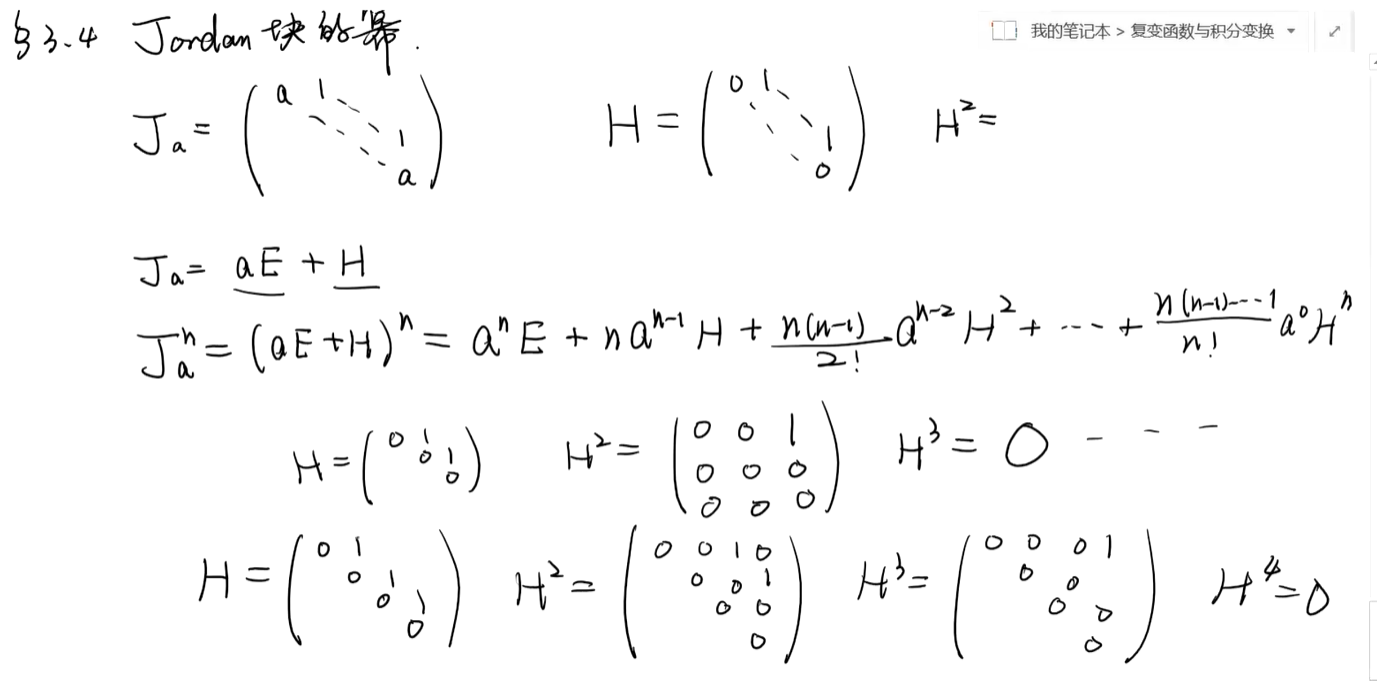 §3.4 Jordan块的幂.
我的笔记本 > 复变函数与积分变换
J_a = ( a 1 ⋱ ⋱ 1 a ) H = ( 0 1 ⋱ ⋱ 1 0 ) H² =
J_a = aE + H
J_a^n = (aE+H)^n = a^n E + n a^{n-1} H + \frac{n(n-1)}{2!} a^{n-2} H² + ⋯ + \frac{n(n-1)⋯1}{n!} a^0 H^n
H = ( 0 1 / 0 1 / 0 ) H² = ( 0 0 1 / 0 0 0 / 0 0 0 ) H³ = 0 - - -
H = ( 0 1 / 0 1 / 0 1 / 0 ) H² = ( 0 0 1 0 / 0 0 1 / 0 0 / 0 ) H³ = ( 0 0 0 1 / 0 0 / 0 0 / 0 ) H⁴ = 0